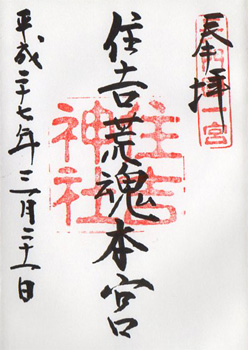 奉拝
一宮
住吉荒魂本宮
住吉
神社
平成二十七年三月二十一日